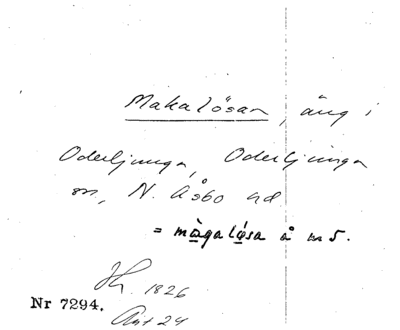 Makalösan, äng i
Oderljunga, Oderljunga
sn, N. Åsbo hd
= màgaløsa å m5.
1826
Nr 7294.
Avt 24